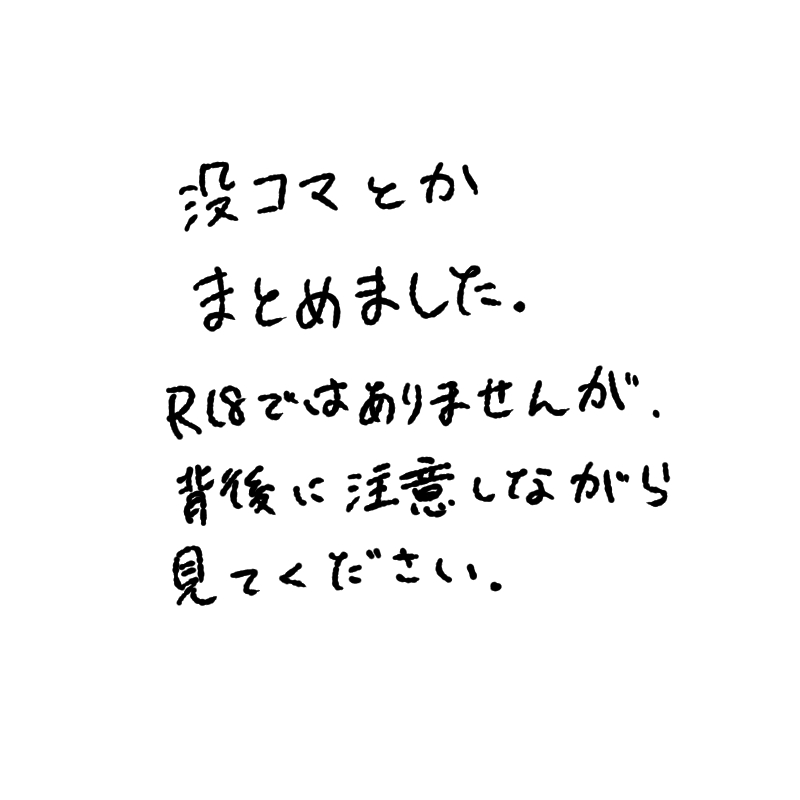 没コマとか
まとめました.
R18ではありませんが.
背後に注意しながら
見てください.